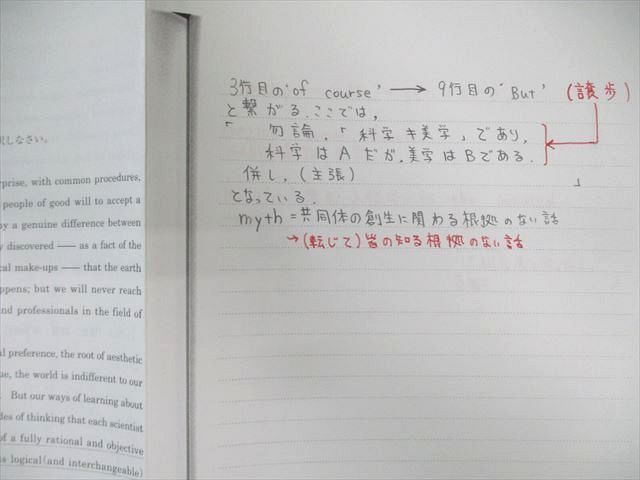 訳しなさい。
prise, with common procedures,
people of good will to accept a
y a genuine difference between
y discovered — as a fact of the
cal make-ups — that the earth
ppens; but we will never reach
nd professionals in the field of
al preference, the root of aesthetic
ue, the world is indifferent to our
But our ways of learning about
des of thinking that each scientist
of a fully rational and objective
s logical (and interchangeable)
3行目の'of course' → 9行目の'But' (譲歩)
と繋がる.ここでは,
「 勿論,「科学≠美学」であり,
科学はAだが,美学はBである.
併し,(主張) 」
となっている.
myth=共同体の創生に関わる根拠のない話
→(転じて)皆の知る根拠のない話